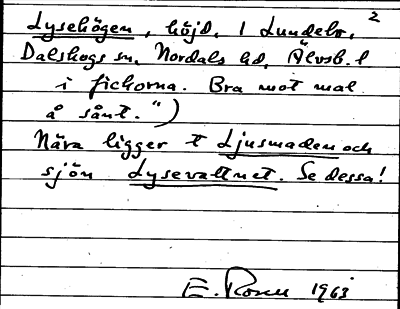 2
Lysehögen, höjd, i Lundebr.
Dalskogs sn. Nordals hd. Älvsb. l
i fickorna. Bra mot mal
å sånt.")
Nära ligger t Ljusmaden och
sjön Lysevattnet. Se dessa!
E. Rosell 1963